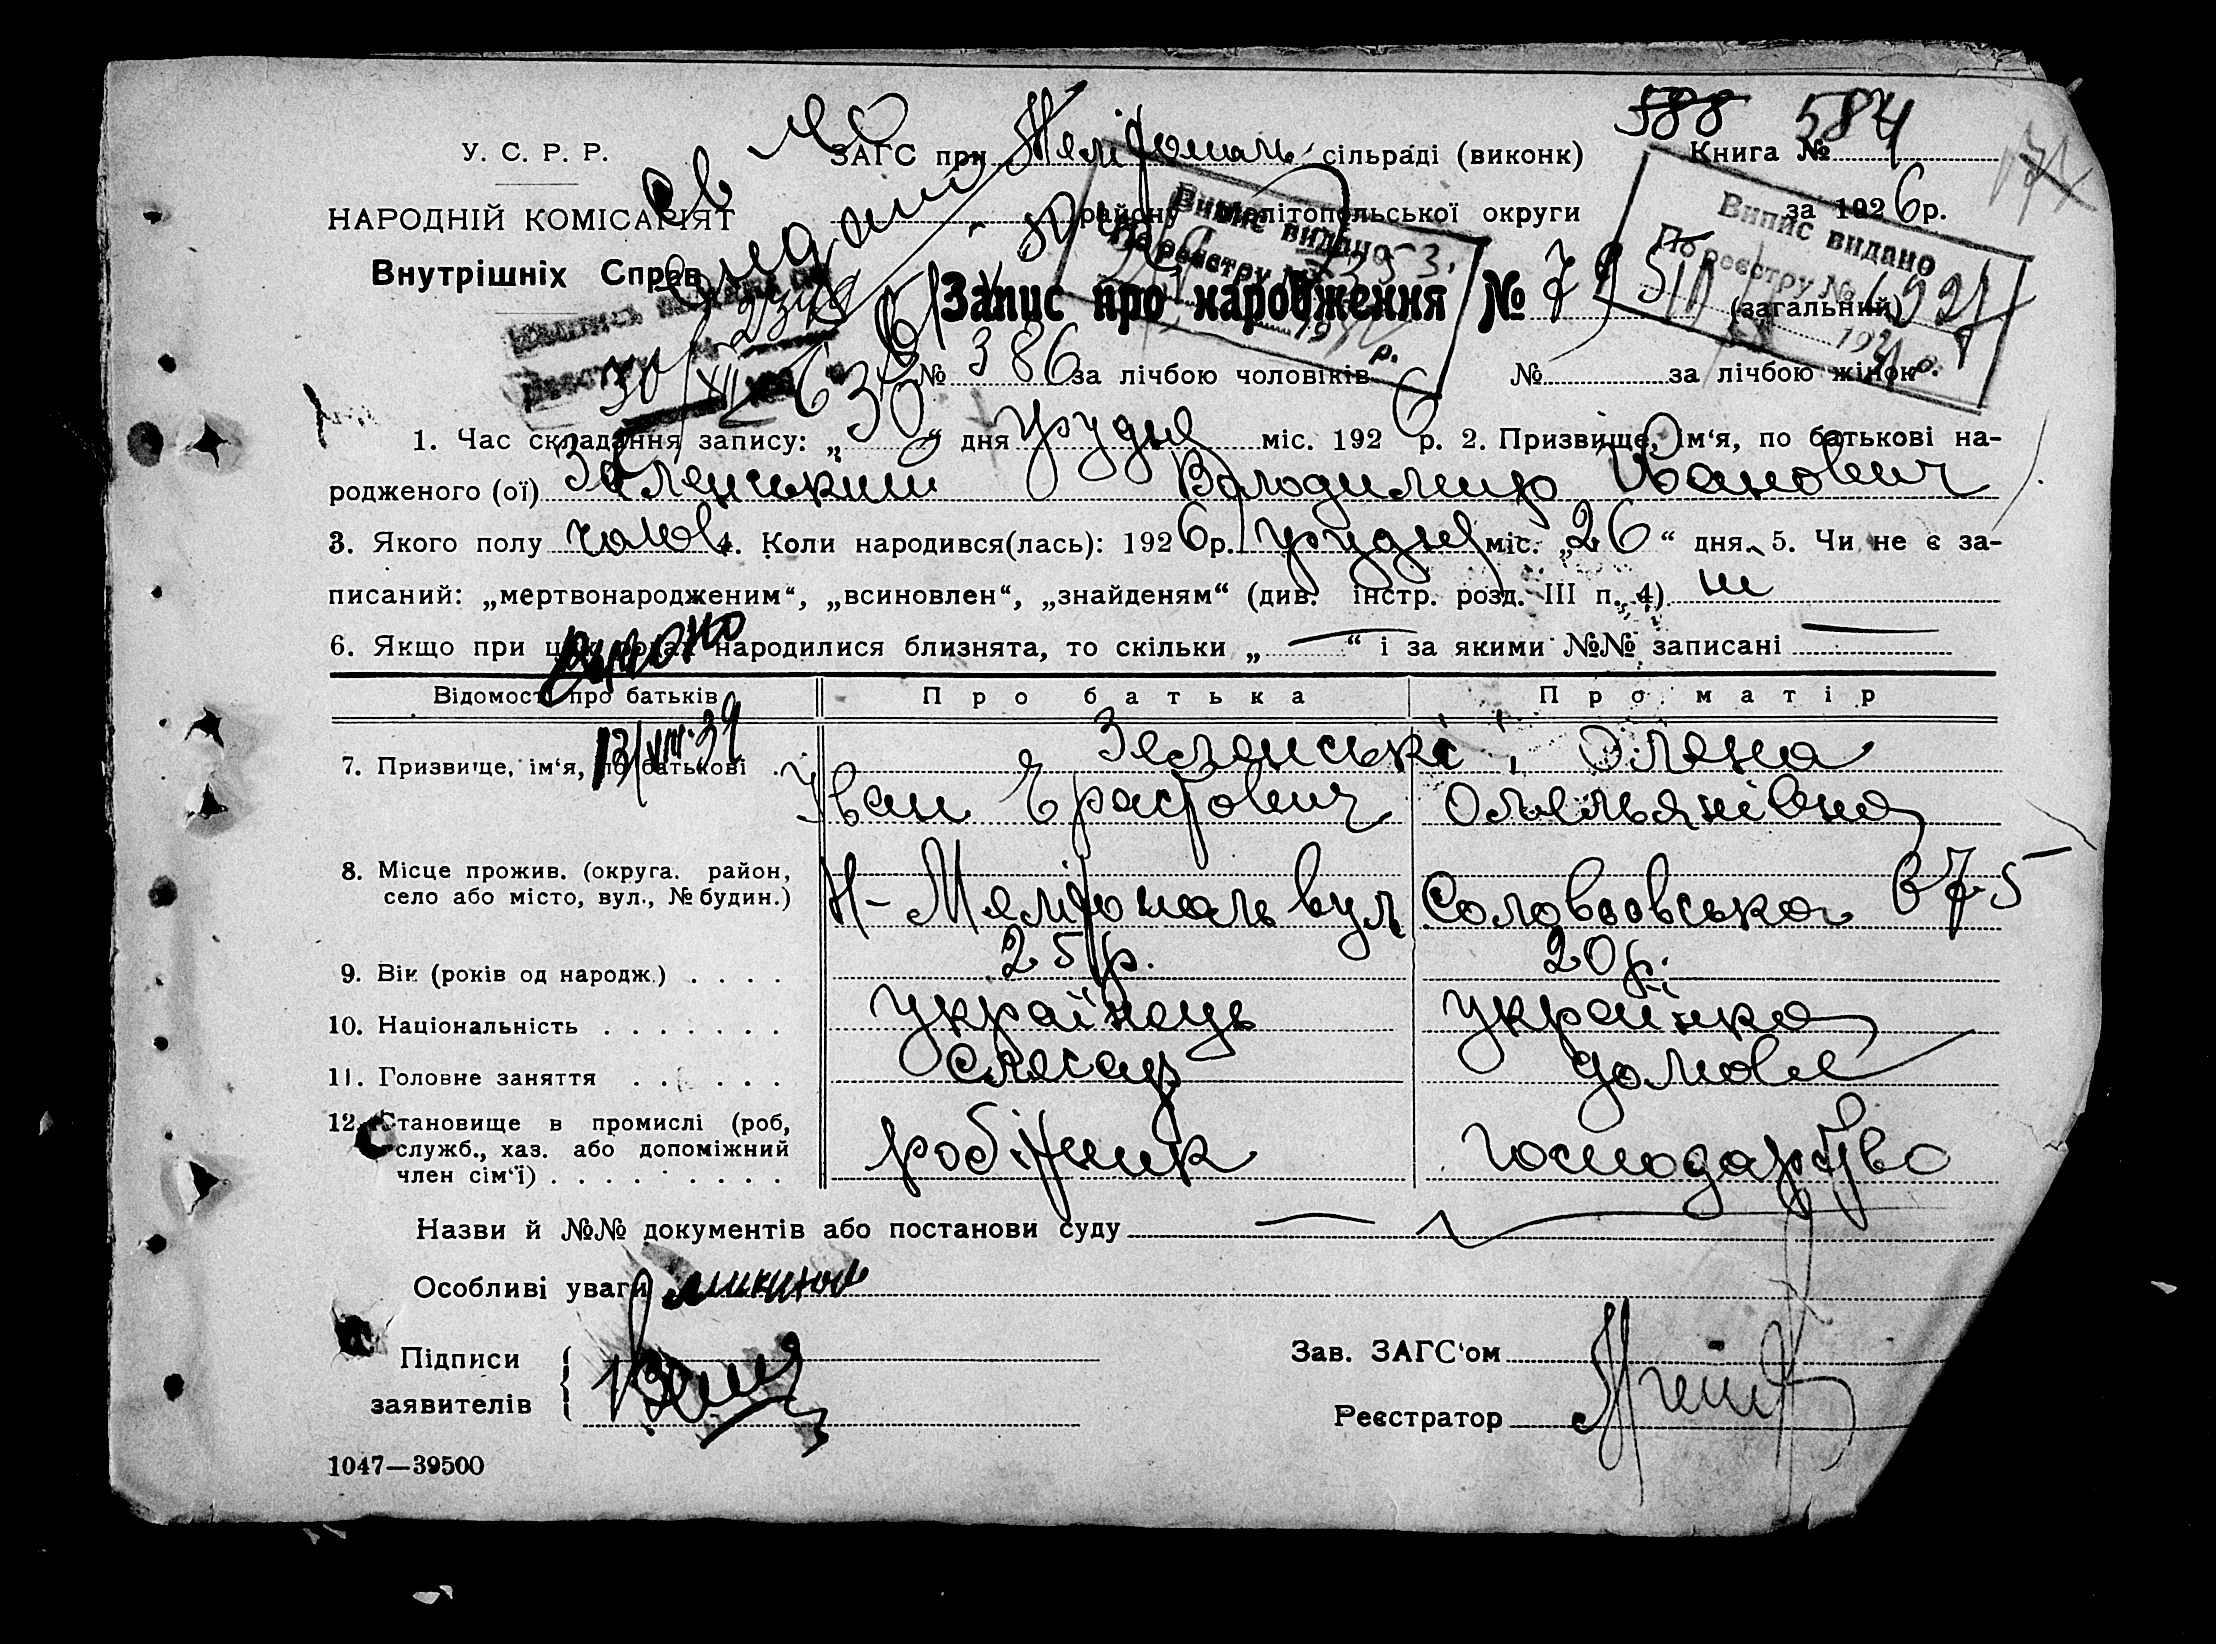 588 584
У. С. Р. Р.
ЗАГС при Меліτополь сільраді (виконк)
Книга №
НАРОДНІЙ КОМІСАРІЯТ
району Мелітопольської округи
за 1926 р.
Внутрішніх Справ
Випис видано
По реєстру №
19 р.
Випис видано
По реєстру №
192 р.
Запис про народження № (загальний)
№ 386 за лічбою чоловіків
№ за лічбою жінок
1. Час складання запису: „30“ дня грудня міс. 1926 р. 2. Призвище, ім‘я, по батькові на-
родженого (ої) Зеленський Володимир Іванович
3. Якого полу чолов. 4. Коли народився(лась): 1926 р. грудня міс. „26“ дня. 5. Чи не є за-
писаний: „мертвонародженим“, „всиновлен“, „знайденям“ (див. інстр. розд. III п. 4) ні
6. Якщо при цих родах народилися близнята, то скільки „—“ і за якими №№ записані —
Відомості про батьків
Про батька
Про матір
13/VIII 39
7. Призвище, ім‘я, по батькові
Зеленські
Іван Ерастович
Олена
Омелянівна
8. Місце прожив. (округа, район,
село або місто, вул., № будин.)
вул Соловйовська
9. Вік (років од народж.)
25 р.
20 р.
10. Національність
українець
українка
11. Головне заняття
слюсар
домове
12. Становище в промислі (роб,
служб., хаз. або допоміжний
член сім‘ї)
робітник
господарство
Назви й №№ документів або постанови суду —
Особливі уваги
Підписи
заявителів
Зав. ЗАГС‘ом
Реєстратор
1047—39500